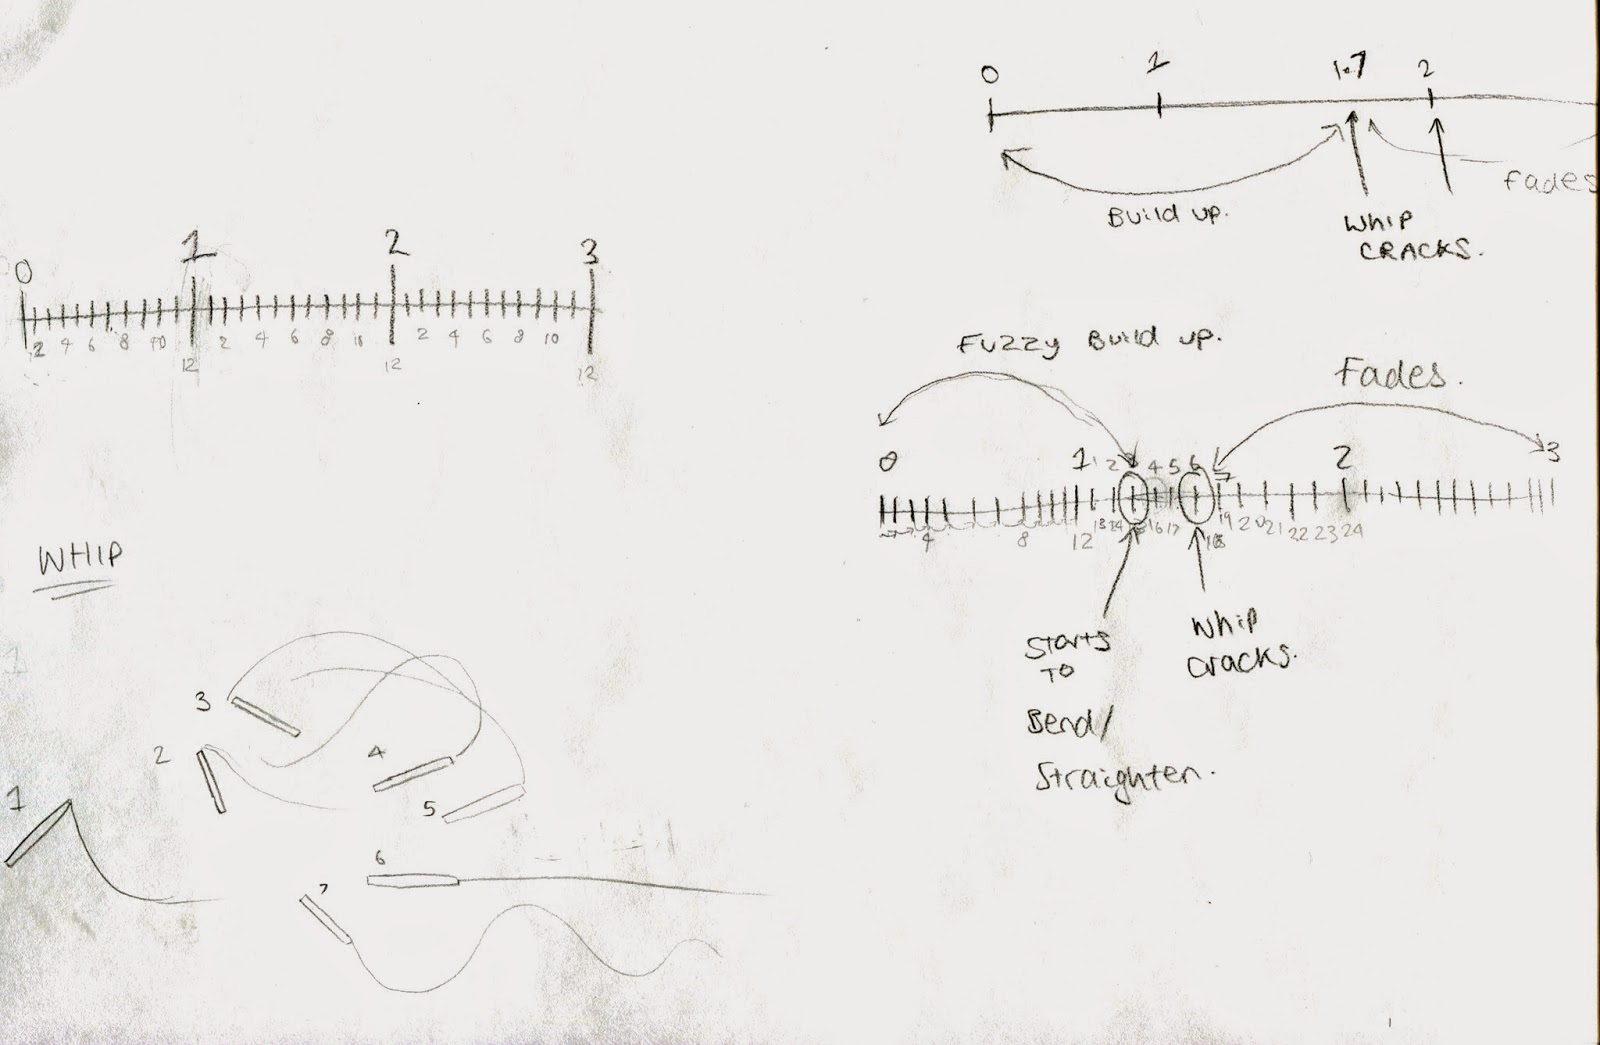 0 1 1.7 2
Build up.
WHIP
CRACKS.
Fades
0 1 2 3
2 4 6 8 10 12 2 4 6 8 10 12 2 4 6 8 10 12
Fuzzy Build up.
Fades.
0 1 1 2 3 4 5 6 7 2 3
4 8 12 13 14 15 16 17 18 19 20 21 22 23 24
Starts
TO
Bend/
Straighten.
Whip
Cracks.
WHIP
1
3
2
4
1
5
6
7